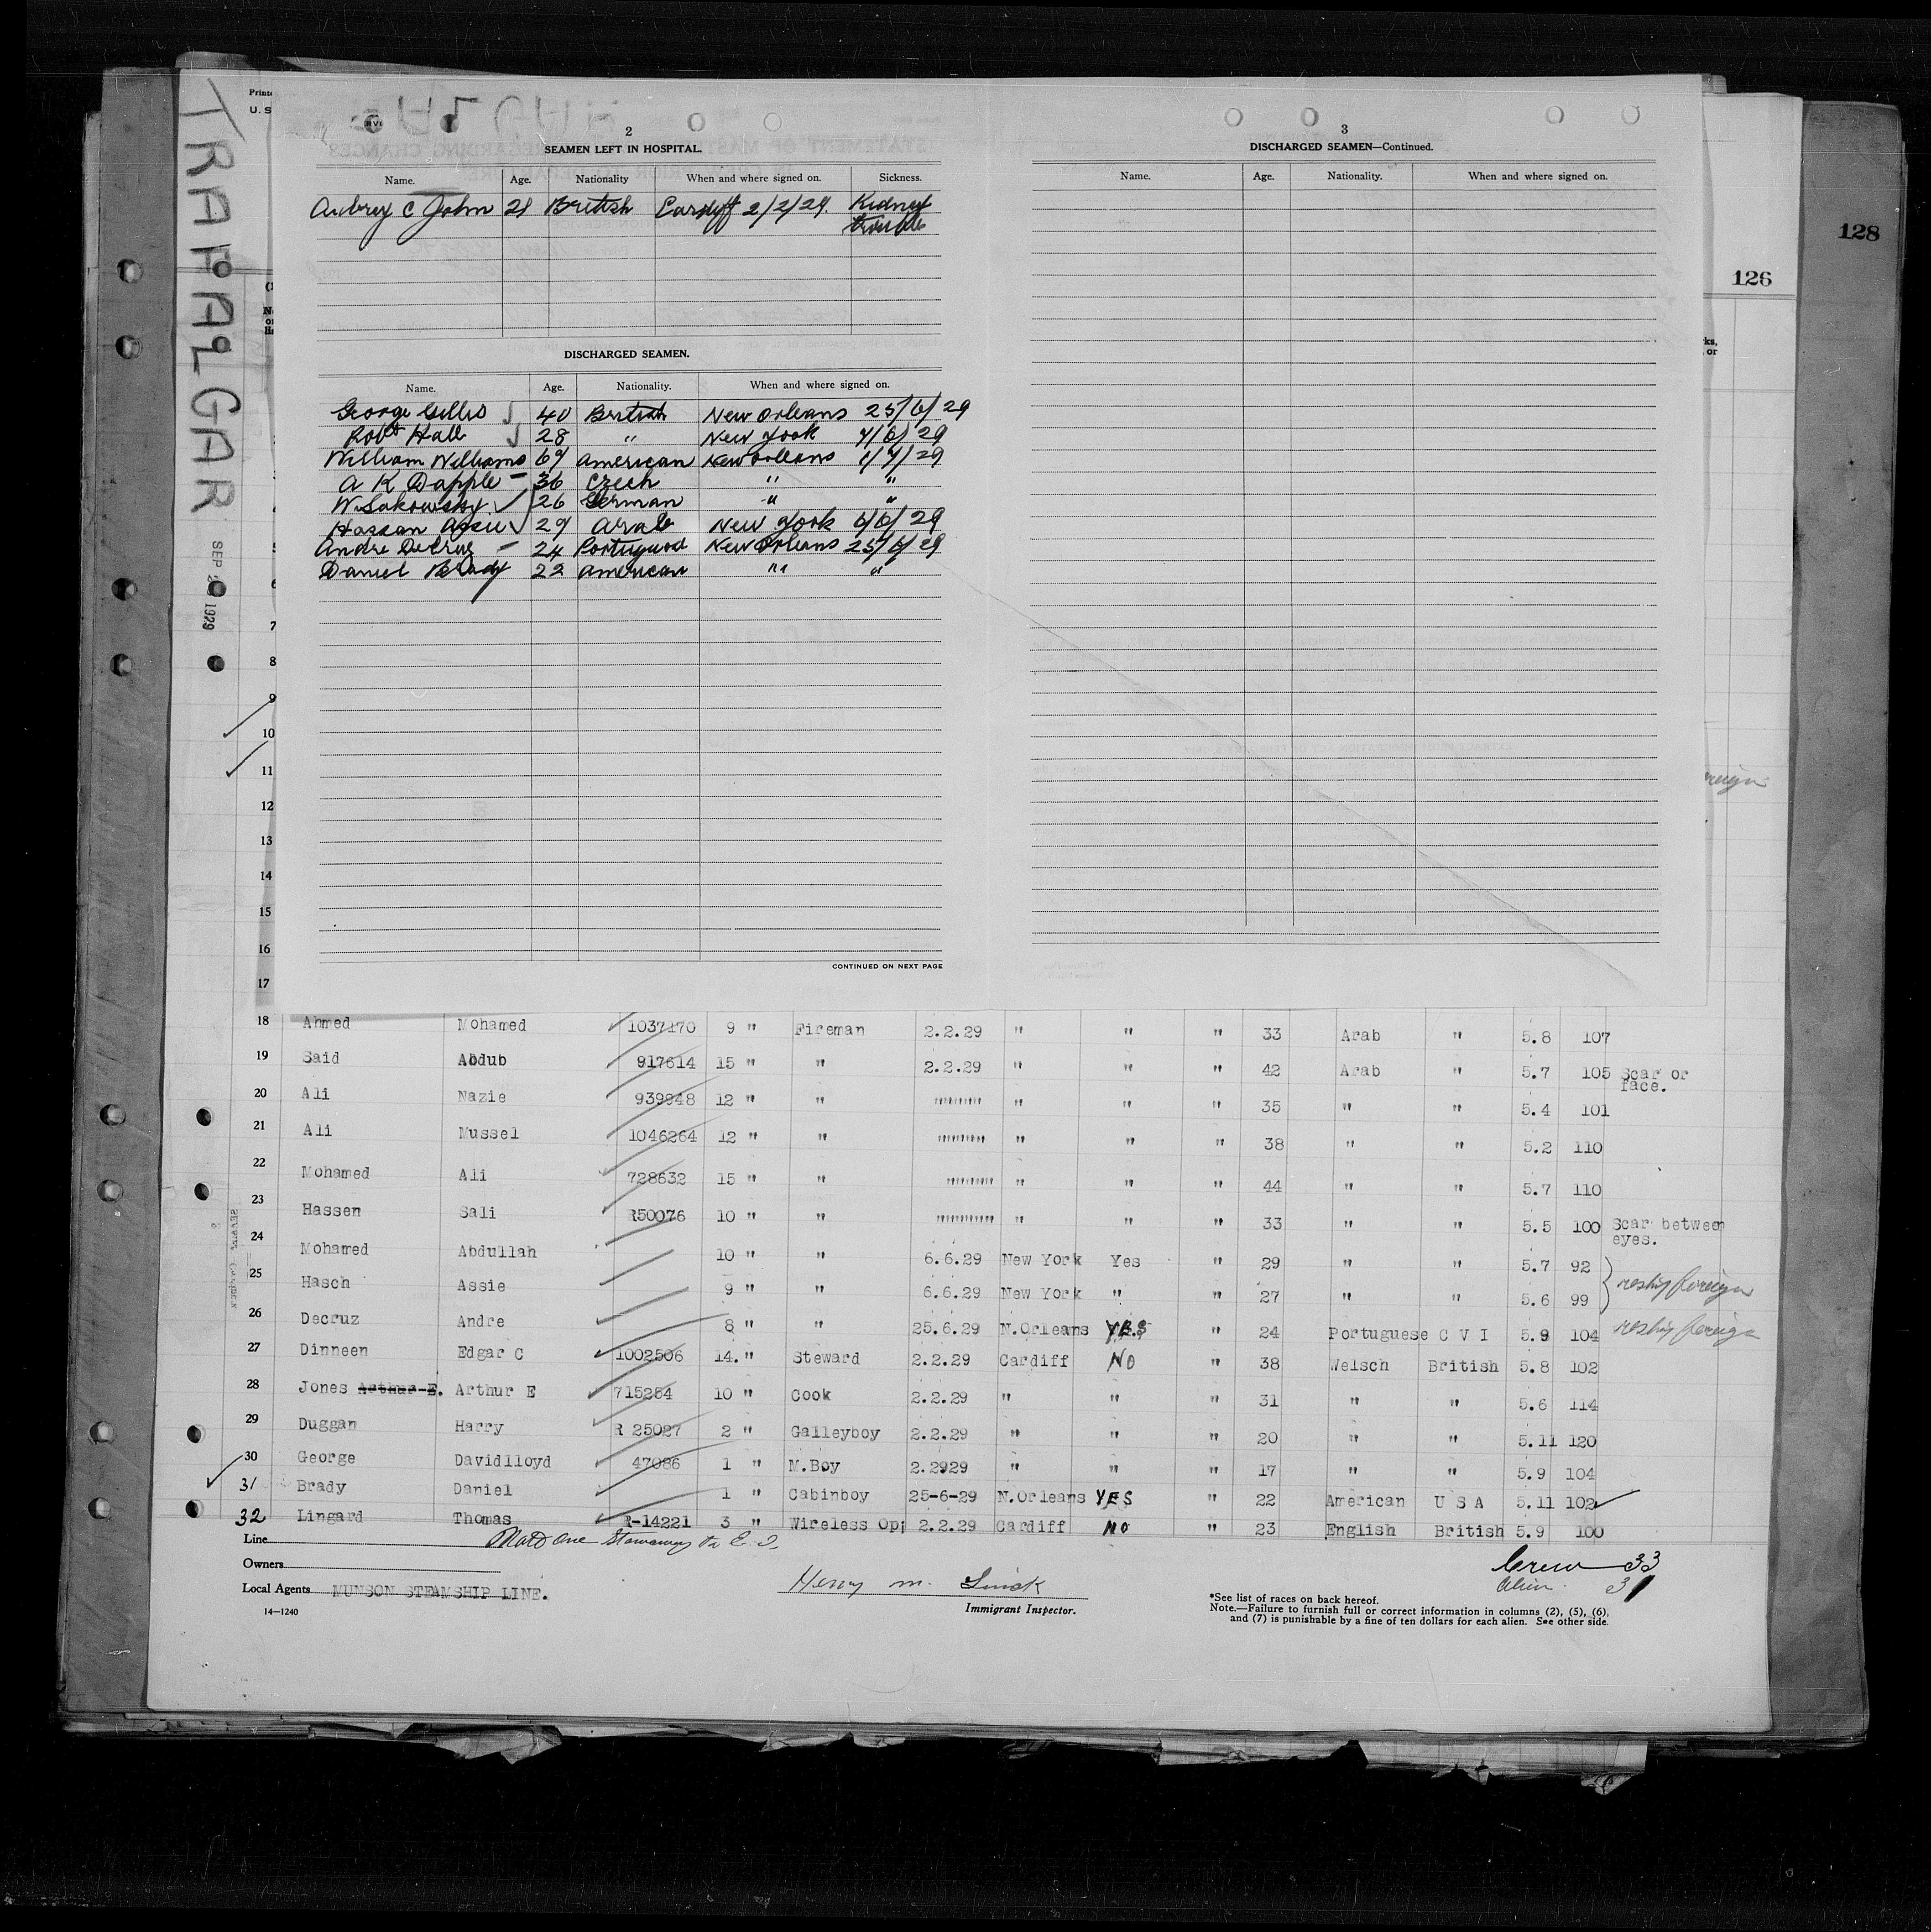 TRAFALGAR
SEP 1929
Printe
U. S
128
126
2
SEAMEN LEFT IN HOSPITAL.
Name. Age. Nationality When and where signed on. Sickness.
Aubrey C John 21 British Cardiff 2/2/29. Kidney
trouble
DISCHARGED SEAMEN.
Name. Age. Nationality. When and where signed on.
George Gillis 40 British New Orleans 25/6/29
Robt Hall 28 " New York 4/6/29
William Williams 69 American New Orleans 1/7/29
A K Dapple 36 Czech " "
W. Sakowsky 26 German " "
Hassan Assu 29 Arab New York 6/6/29
Andre DeCruz 24 New Orleans 25/6/29
Daniel Brady 22 American " "
CONTINUED ON NEXT PAGE
3
DISCHARGED SEAMEN—Continued.
Name. Age. Nationality. When and where signed on.
7
8
9
10
11
12
13
14
15
16
17
18 Ahmed Mohamed 1037170 9 " Fireman 2.2.29 " " " 33 Arab " 5.8 107
19 Said Abdub 917614 15 " " 2.2.29 " " " 42 Arab " 5.7 105 Scar or
face.
20 Ali Nazie 939948 12 " " """"" " " " 35 " " 5.4 101
21 Ali Mussel 1046264 12 " " """"" " " " 38 " " 5.2 110
22 Mohamed Ali 728632 15 " " """"" " " " 44 " " 5.7 110
23 Hassen Sali R50076 10 " " """""" " " " 33 " " 5.5 100 Scar between
eyes.
24 Mohamed Abdullah 10 " " 6.6.29 New York Yes " 29 " " 5.7 92
25 Hasch Assie 9 " " 6.6.29 New York " " 27 " " 5.6 99 reship foreign
26 Decruz Andre 8 " " 25.6.29 N.Orleans YES " 24 Portuguese C V I 5.9 104 reship foreign
27 Dinneen Edgar C 1002506 14. " Steward 2.2.29 Cardiff No " 38 Welsch British 5.8 102
28 Jones Arthur-E. Arthur E 715254 10 " Cook 2.2.29 " " " 31 " " 5.6 114
29 Duggan Harry R 25027 2 " Galleyboy 2.2.29 " " " 20 " " 5.11 120
30 George Davidlloyd 47086 1 " M.Boy 2.2929 " " " 17 " " 5.9 104
31 Brady Daniel 1 " Cabinboy 25-6-29 N.Orleans YES " 22 American U S A 5.11 102
32 Lingard Thomas R-14221 3 " Wireless Op 2.2.29 Cardiff No " 23 English British 5.9 100
Line one Stowaway
Owners
Local Agents MUNSON STEAMSHIP LINE.
14—1240
Henry M.
Immigrant Inspector.
Crew 33
Alien 31
*See list of races on back hereof.
Note.—Failure to furnish full or correct information in columns (2), (5), (6),
and (7) is punishable by a fine of ten dollars for each alien. See other side.